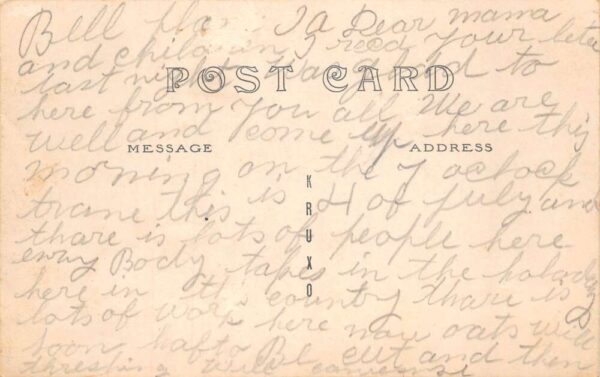 Bell Plain Ia Dear mama
and children I recd your letter
last night was glad to
POST CARD
here from you all We are
well and come up here this
MESSAGE
ADDRESS
morning on the 7 oclock
trane this is 4 of July and
KRUXO
thare is lots of people here
enny Body takes in the holaday
here in this country thare is
lots of work here now oats will
soon hafto Be cut and then
threshing will comense